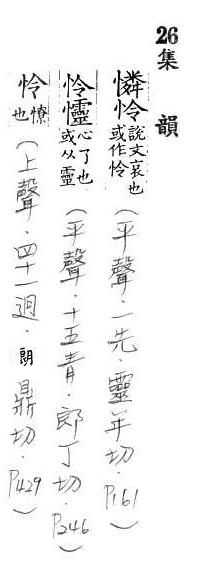 26集 韻
憐怜 說文哀也或作怜（平聲．一先．靈年切．P161）
怜㦭 心了也或从靈（平聲．十五青．郎丁切．P246）
怜 憭也（上聲．四十一迥．朗鼎切．P429）